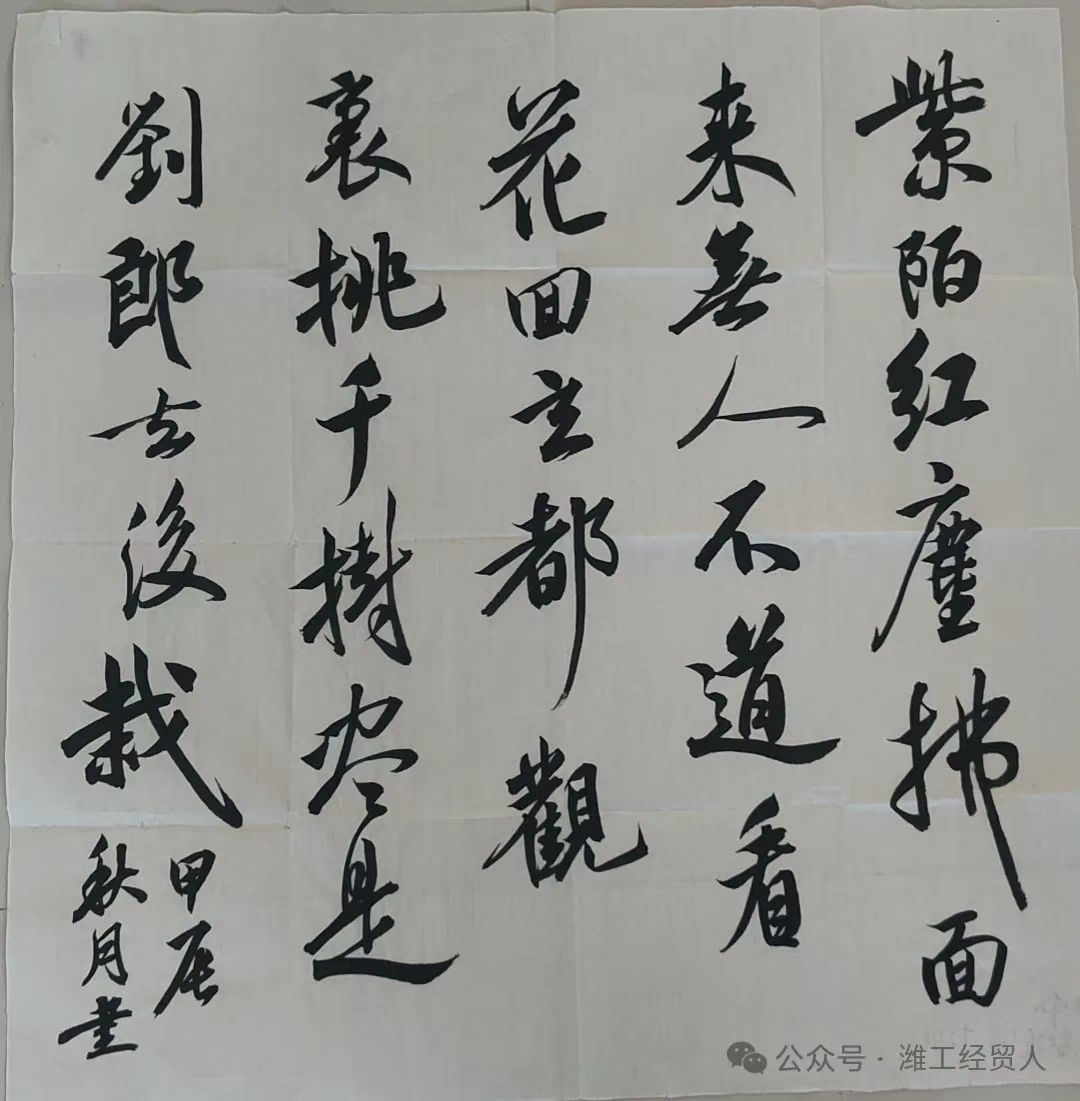 紫陌红塵拂面
来無人不道看
花回玄都觀
裏挑千樹尽是
劉郎去後栽
甲辰
秋月書
公众号 · 潍工经贸人